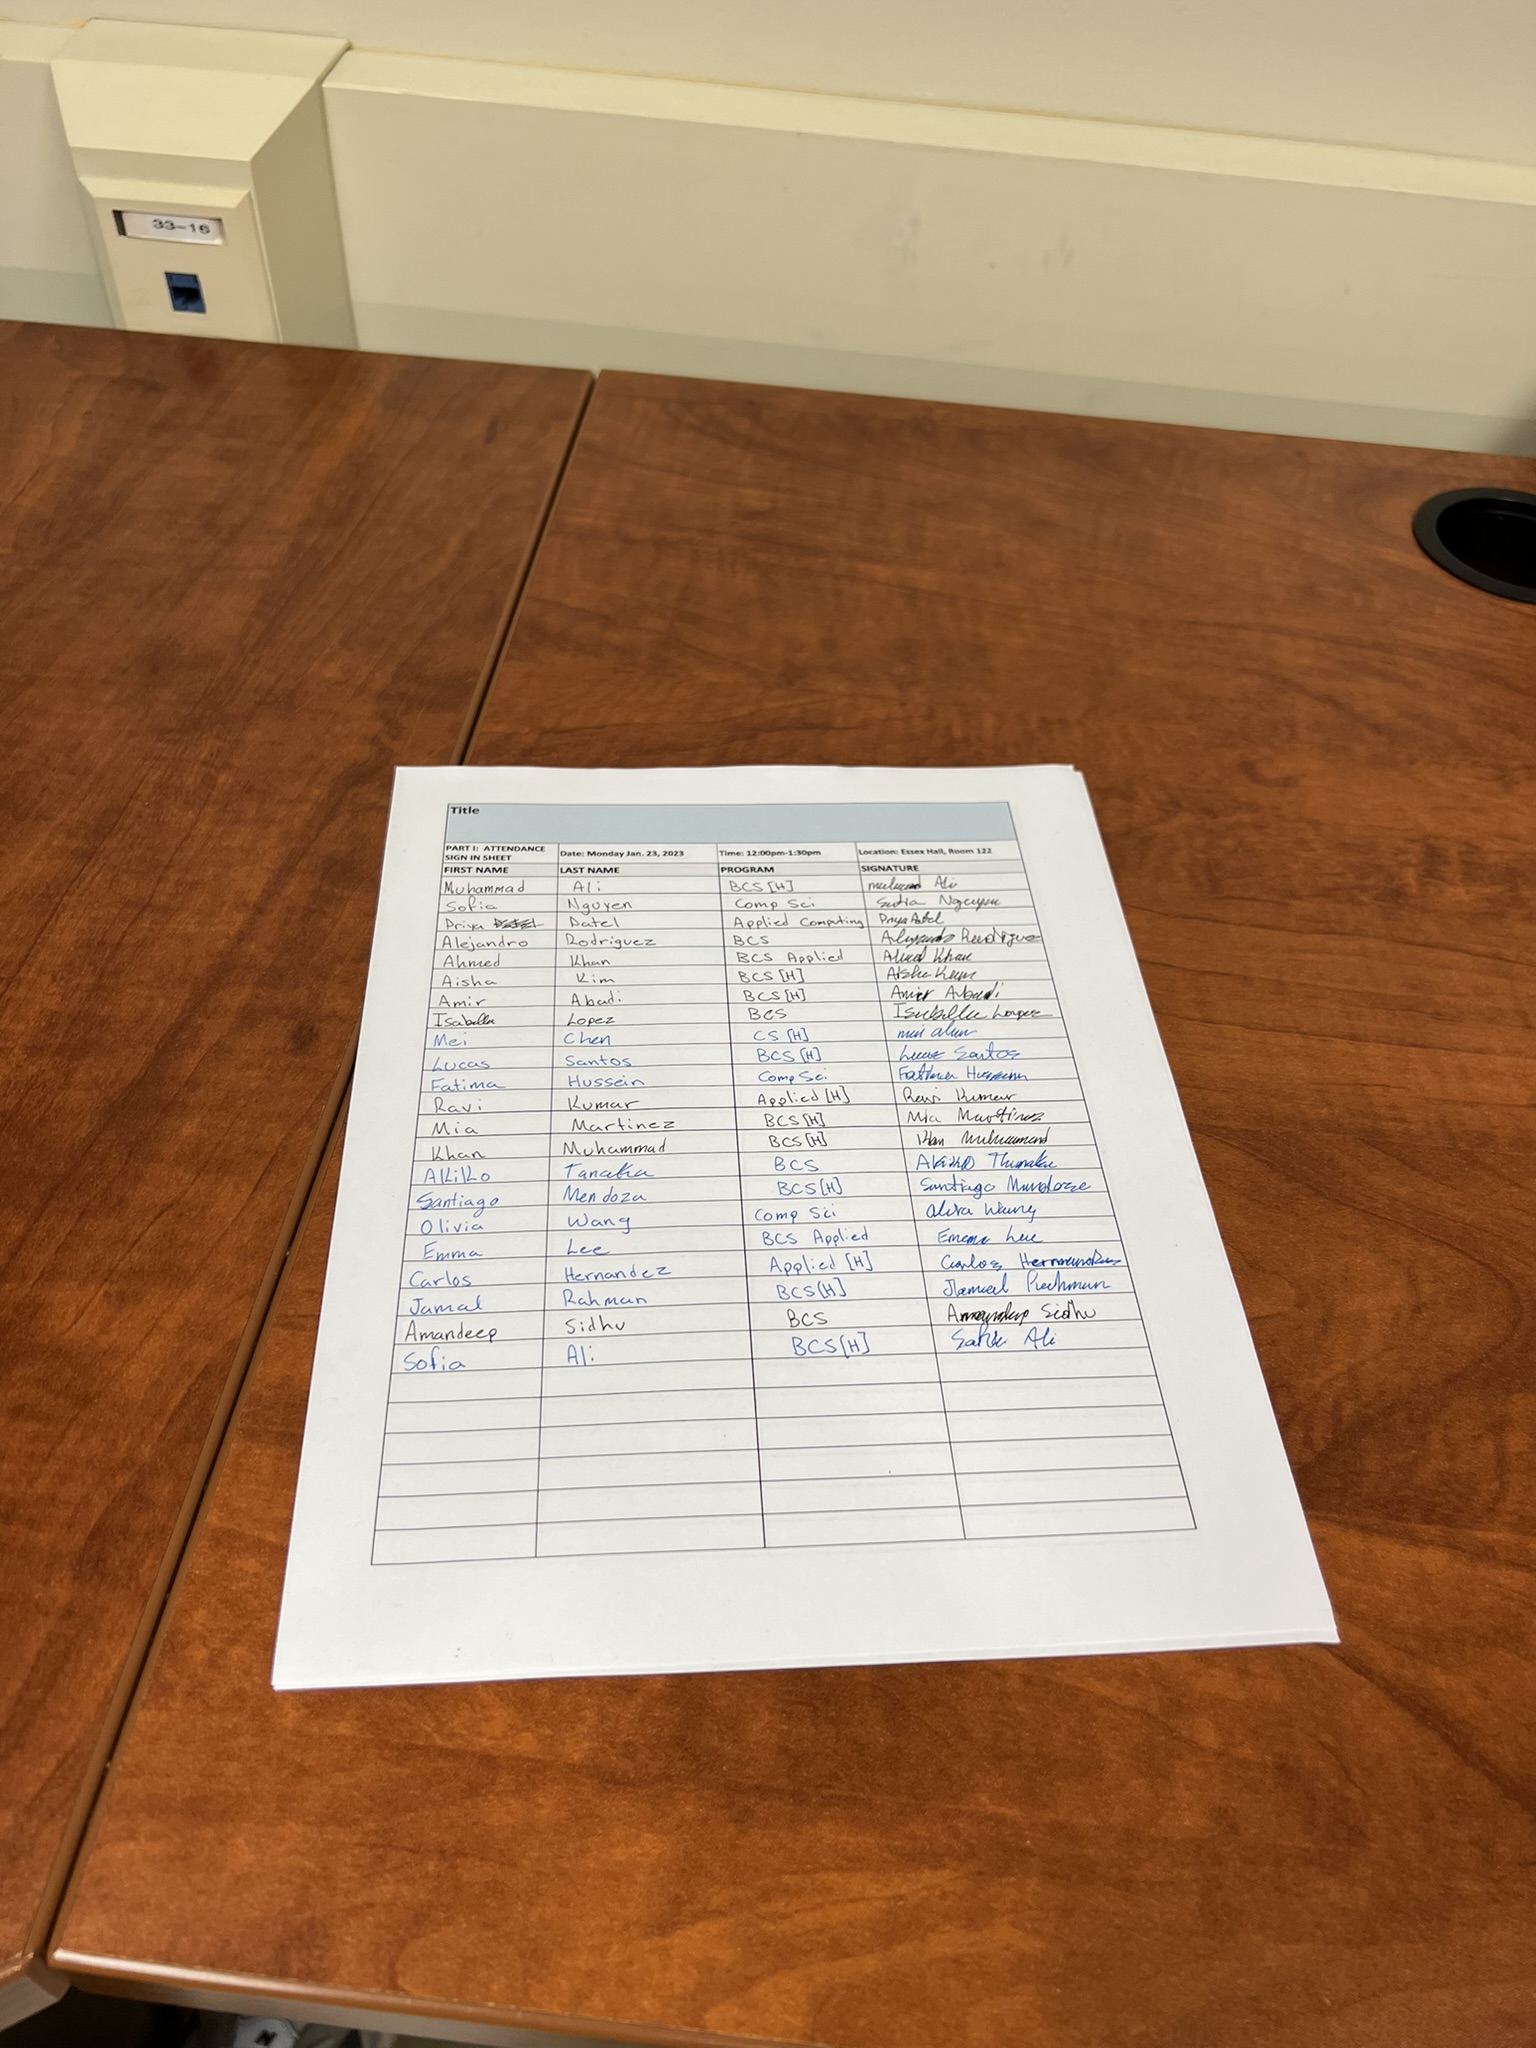 33-16
Title
PART I: ATTENDANCE SIGN IN SHEET Date: Monday Jan. 23, 2023 Time: 12:00pm-1:30pm Location: Essex Hall, Room 122
FIRST NAME LAST NAME PROGRAM SIGNATURE
Muhammad Ali BCS [H] Ali
Sofia Nguyen Comp Sci Nguyen
Priya Patel Applied Computing Priya Patel
Alejandro Rodriguez BCS Alejandro Rodriguez
Ahmed Khan BCS Applied Ahmed Khan
Aisha Kim BCS [H] Aisha Kim
Amir Abadi BCS [H] Amir Abadi
Isabella Lopez BCS Isabella Lopez
Mei Chen CS [H] mei chen
Lucas Santos BCS [H] Lucas Santos
Fatima Hussein Comp Sci Fatima Hussein
Ravi Kumar Applied [H] Ravi Kumar
Mia Martinez BCS [H] Mia Martinez
Khan Muhammad BCS [H] Khan Muhammad
Akiko Tanaka BCS Akiko Tanaka
Santiago Mendoza BCS [H] Santiago Mendoza
Olivia Wang Comp Sci Wang
Emma Lee BCS Applied Emma Lee
Carlos Hernandez Applied [H] Carlos Hernandez
Jamal Rahman BCS [H] Jamal Rahman
Amandeep Sidhu BCS Amandeep Sidhu
Sofia Ali BCS [H] Ali